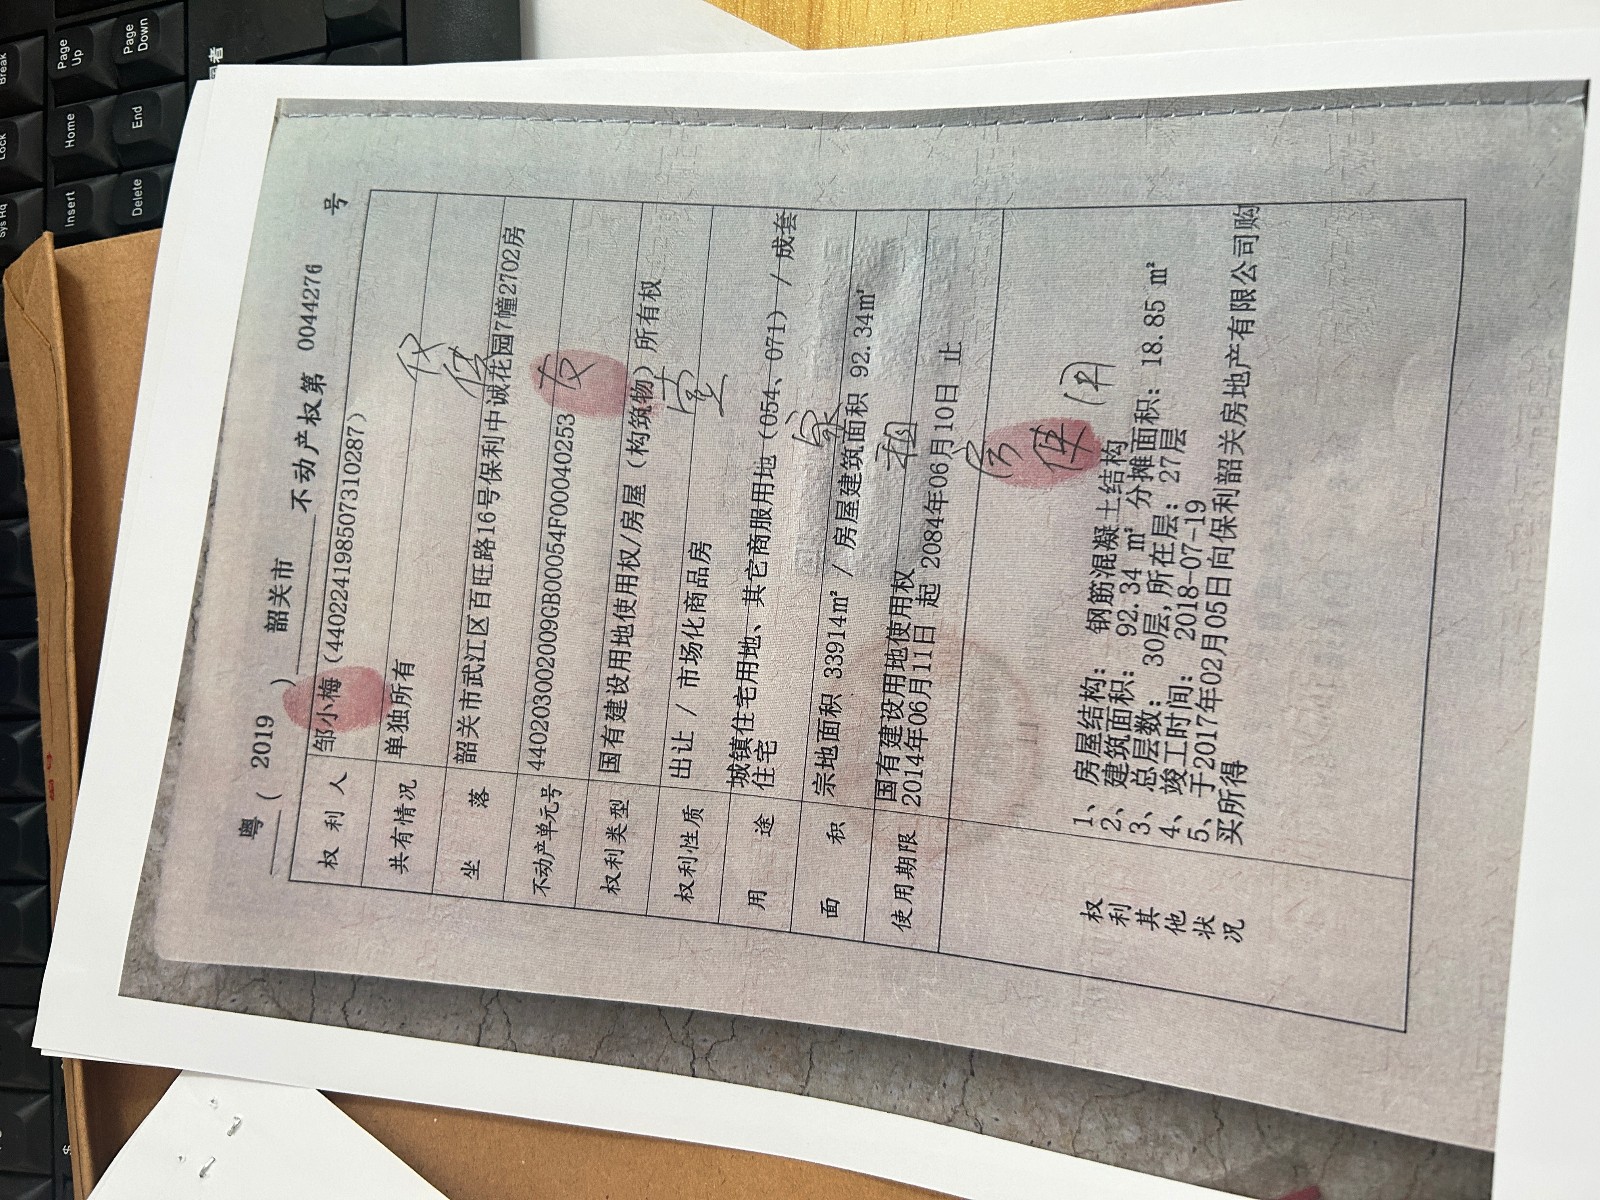 粤（ 2019 ） 韶关市 不动产权第 0044276 号
权利人 邹小梅（440224198507310287）
共有情况 单独所有
坐落 韶关市武江区百旺路16号保利中诚花园7幢2702房
不动产单元号 440203002009GB00054F00040253
权利类型 国有建设用地使用权/房屋（构筑物）所有权
权利性质 出让 / 市场化商品房
用途 城镇住宅用地、其它商服用地（054、071） / 成套
住宅
面积 宗地面积 33914㎡ / 房屋建筑面积 92.34㎡
使用期限 国有建设用地使用权
2014年06月11日 起 2084年06月10日 止
权利其他状况
1、房屋结构： 钢筋混凝土结构
2、建筑面积： 92.34 ㎡ 分摊面积： 18.85 ㎡
3、总层数： 30层,所在层： 27层
4、竣工时间： 2018-07-19
5、于2017年02月05日向保利韶关房地产有限公司购
买所得
仅
租
房
使
用
Break
Page Up
Page Down
Lock
Home
End
Sys Rq
Insert
Delete
者
$